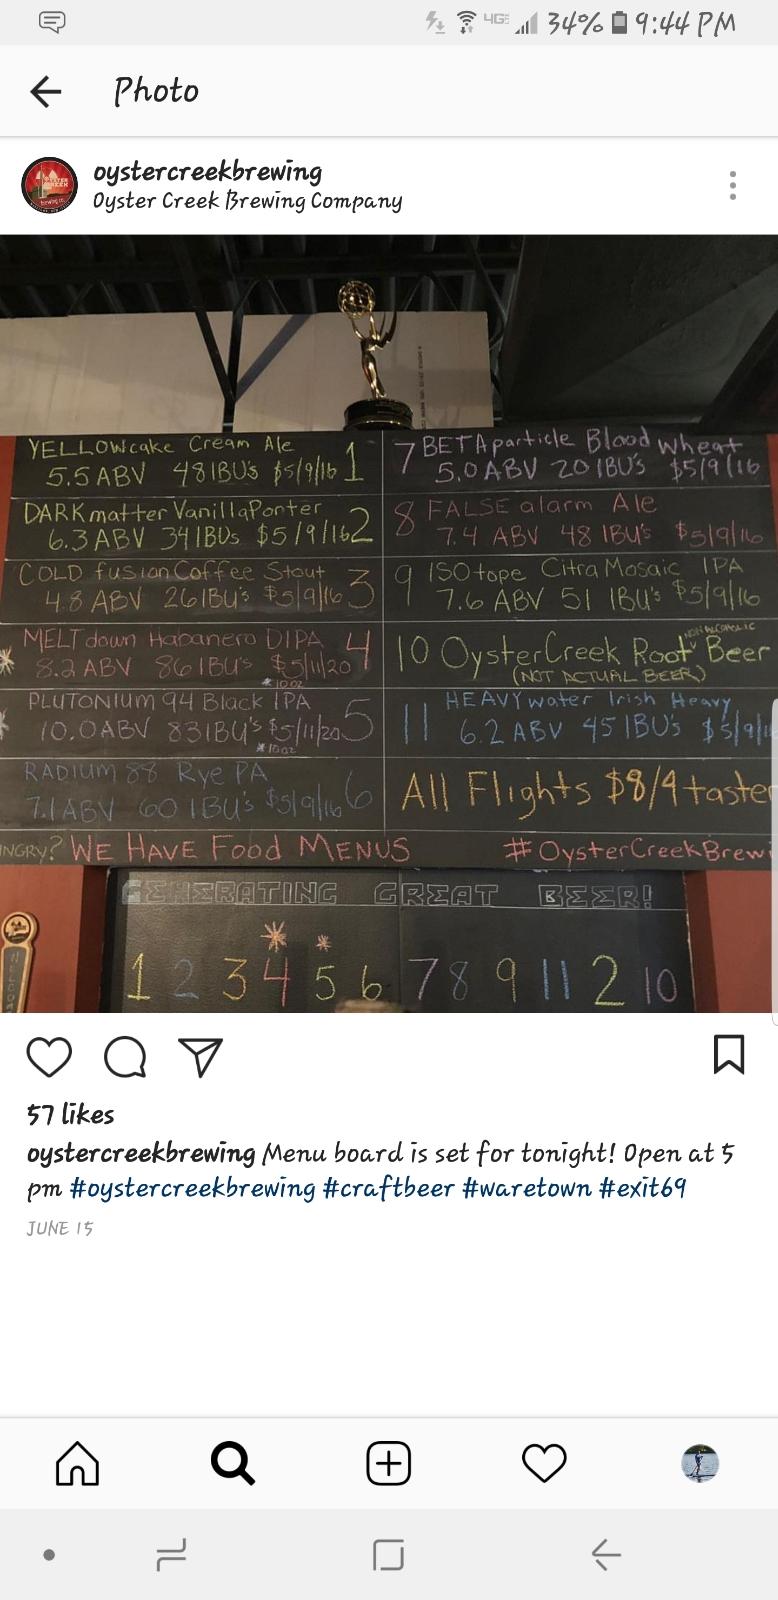 4GE 34% 9:44 PM
Photo
oystercreekbrewing
Oyster Creek Brewing Company
YELLOWcake Cream Ale 1
5.5 ABV 48 IBU's $5/9/16
DARKmatter VanillaPorter 2
6.3 ABV 34 IBUs $5/9/16
COLD fusion Coffee Stout 3
4.8 ABV 26 IBU's $5/9/16
MELTdown Habanero DIPA 4
8.2 ABV 86 IBU's $5/11/20
*10oz
PLUTONIUM 94 Black IPA 5
10.0 ABV 83 IBU's $5/11/20
*10oz
RADIUM 88 Rye PA 6
7.1 ABV 60 IBU's $5/9/16
7 BETAparticle Blood Wheat
5.0 ABV 20 IBU'S $5/9/16
8 FALSE alarm Ale
7.4 ABV 48 IBU's $5/9/16
9 ISOtope Citra Mosaic IPA
7.6 ABV 51 IBU's $5/9/16
NON ALCOHOLIC
10 OysterCreek Root Beer
(NOT ACTUAL BEER)
11 HEAVYwater Irish Heavy
6.2 ABV 45 IBU's $5/9/1
All Flights $8/4 taster
NGRY? WE HAVE Food MENUS #OysterCreekBrewi
GENERATING GREAT BEER!
1 2 3 4 5 6 7 8 9 11 2 10
WELCOME
57 likes
oystercreekbrewing Menu board is set for tonight! Open at 5
pm #oystercreekbrewing #craftbeer #waretown #exit69
JUNE 15